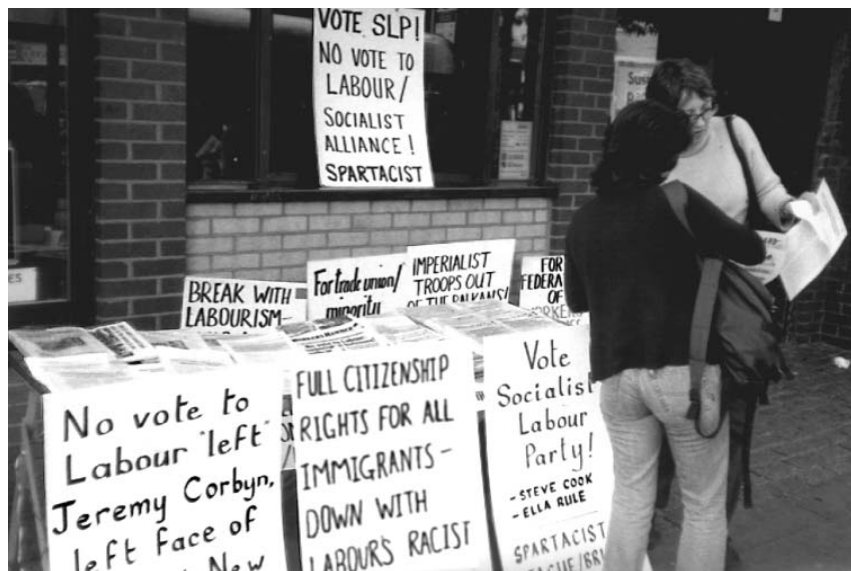 VOTE SLP!
NO VOTE TO
LABOUR/
SOCIALIST
ALLIANCE!
SPARTACIST
BREAK WITH
LABOURISM-
For trade union/
minority
IMPERIALIST
TROOPS OUT
OF THE BALKANS!
FOR
FEDERA
OF
No vote to
Labour "left"
Jeremy Corbyn,
left face of
New
FULL CITIZENSHIP
RIGHTS FOR ALL
IMMIGRANTS-
DOWN WITH
LABOUR'S RACIST
Vote
Socialist
Labour
Party!
- STEVE COOK
- ELLA RULE
SPARTACIST